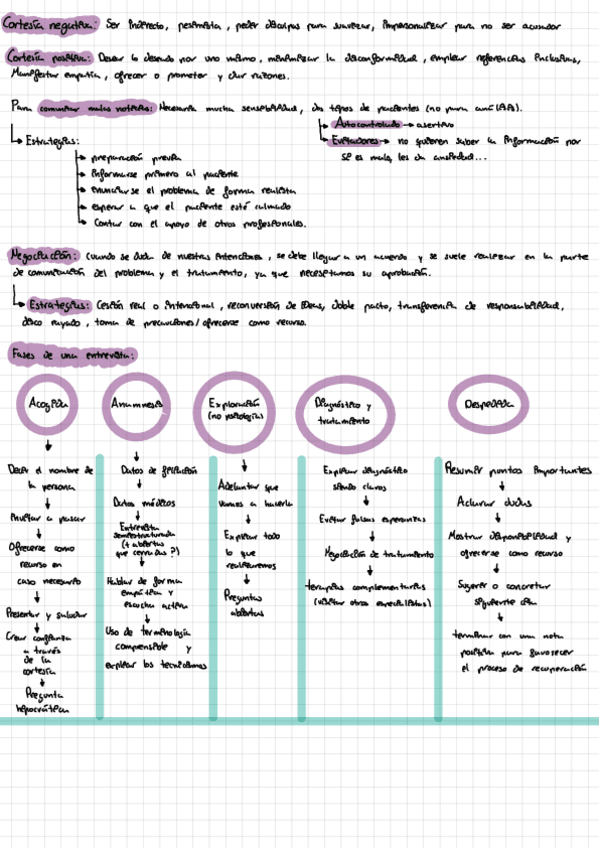 Cortesía negativa: Ser indirecto, pesimista, pedir disculpas para suavizar, impersonalizar para no ser acusador
Cortesía positiva: Desear lo deseado por uno mismo, minimizar la disconformidad, emplear referencias inclusivas,
Manifestar empatía, ofrecer o prometer y dar razones.
Para comunicar malas noticias: Necesaria mucha sensibilidad, dos tipos de pacientes (no para análisis).
Autocontrolado → asertivo
Estrategias:
Evitadores → no quieren saber la información por
si es mala, les da ansiedad...
preparación previa
informarse primero al paciente
enunciarse el problema de forma realista
esperar a que el paciente esté calmado
Contar con el apoyo de otros profesionales.
Negociación: Cuando se duda de nuestras intenciones, se debe llegar a un acuerdo y se suele realizar en la parte
de comunicación del problema y el tratamiento, ya que necesitamos su aprobación.
Estrategias: Cesión real o intencional, reconversión de ideas, doble pacto, transferencia de responsabilidad,
disco rayado, toma de precauciones/ofrecerse como recurso.
Fases de una entrevista:
Acogida
Decir el nombre de
la persona
Invitar a pasar
Ofrecerse como
recurso en
caso necesario
Presentar y saludar
Crear confianza
a través
de la
cortesía
Pregunta
hipocrática
Anamnesis
Datos de filiación
Datos médicos
Entrevista
semiestructurada
(+ abiertas
que cerradas ?)
Hablar de forma
empática y
escucha activa
Uso de terminología
comprensible y
explicar los tecnicismos
Exploración
(no psicología)
Adelantar que
vamos a hacerla
Explicar todo
lo que
realizaremos
Preguntas
abiertas
Diagnóstico y
tratamiento
Explicar diagnóstico
siendo claros
Evitar falsas esperanzas
Negociación de tratamiento
terapias complementarias
(visitar otros especialistas)
Despedida
Resumir puntos importantes
Aclarar dudas
Mostrar disponibilidad y
ofrecerse como recurso
Sugerir o concretar
siguiente cita
terminar con una nota
positiva para favorecer
el proceso de recuperación